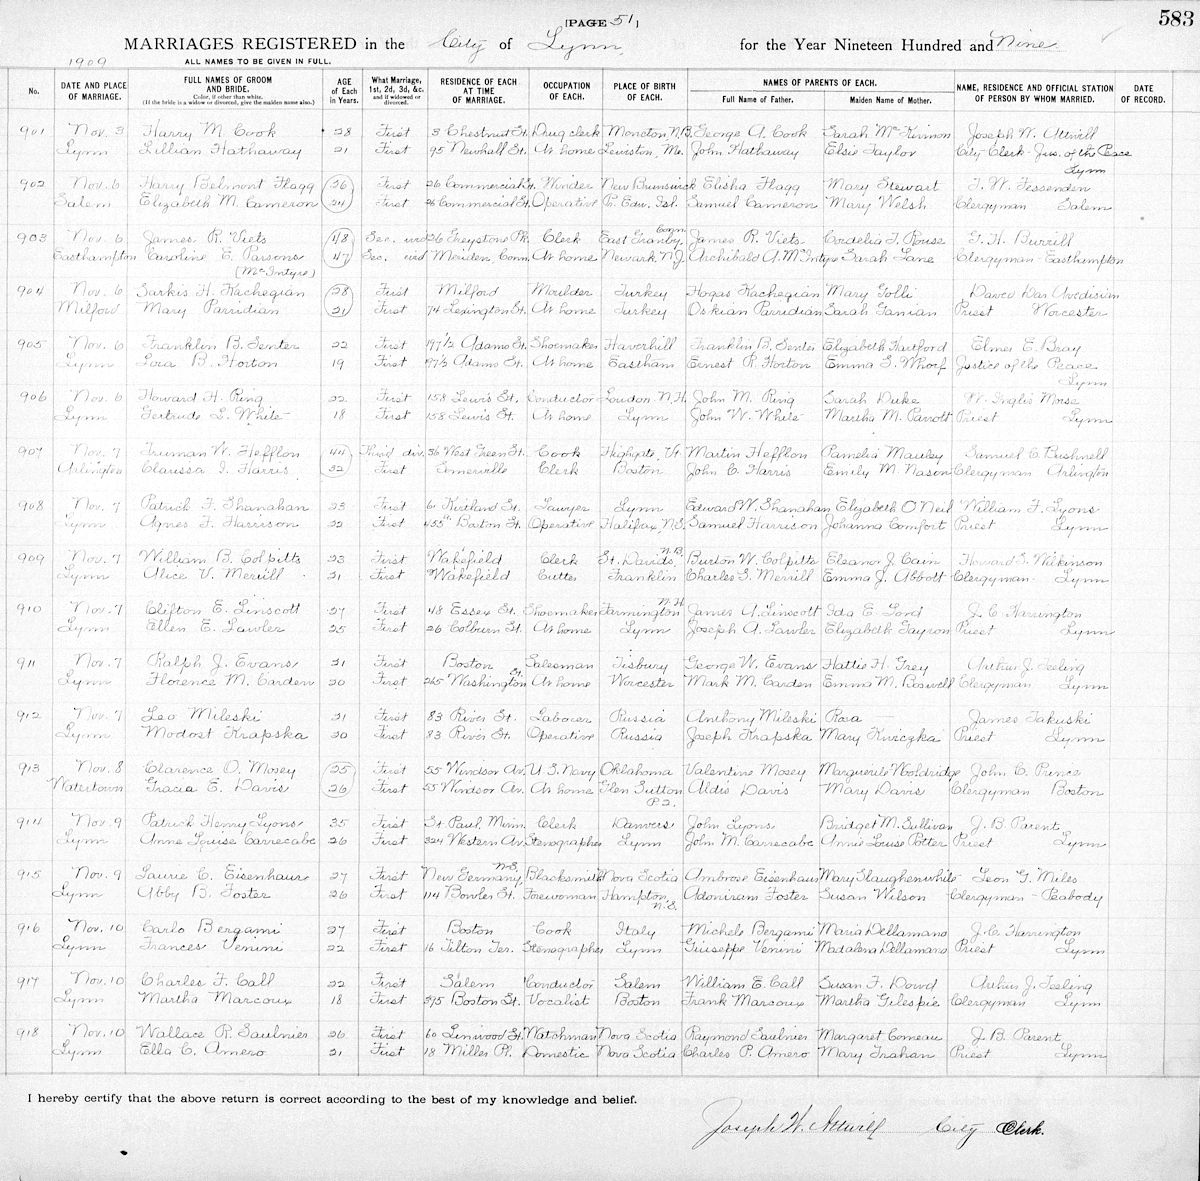 [PAGE 51]
583
MARRIAGES REGISTERED in the City of Lynn, for the Year Nineteen Hundred and Nine
1909
ALL NAMES TO BE GIVEN IN FULL.
No. | DATE AND PLACE OF MARRIAGE. | FULL NAMES OF GROOM AND BRIDE. Color, if other than white. (If the bride is a widow or divorced, give the maiden name also.) | AGE of Each in Years. | What Marriage, 1st, 2d, 3d, &c. and if widowed or divorced. | RESIDENCE OF EACH AT TIME OF MARRIAGE. | OCCUPATION OF EACH. | PLACE OF BIRTH OF EACH. | NAMES OF PARENTS OF EACH. Full Name of Father. | Maiden Name of Mother. | NAME, RESIDENCE AND OFFICIAL STATION OF PERSON BY WHOM MARRIED. | DATE OF RECORD.
901 Nov. 3 Harry M. Cook 28 First 3 Chestnut St. Drug clerk Moncton, N.B. George A. Cook Sarah McKinnon Joseph W. Attwill
Lynn Lillian Hathaway 21 First 95 Newhall St. At home Lewiston, Me. John Hathaway Elsie Taylor City Clerk - Jus. of the Peace
Lynn
902 Nov. 6 Harry Belmont Flagg 26 First 26 Commercial St. Winder New Brunswick Elisha Flagg Mary Stewart T. W. Fessenden
Salem Elizabeth M. Cameron 24 First 26 Commercial St. Operative Pr. Edw. Isl. Samuel Cameron Mary Welsh Clergyman Salem
Conn.
903 Nov. 6 James R. Viets 48 Sec. wid 26 Greystone Pk. Clerk East Granby, James R. Viets Cordelia T. Rouse G. H. Burrill
Easthampton Caroline E. Parsons 47 Sec. wid Meriden, Conn. At home Newark N.J. Archibald A. McIntyre Sarah Lane Clergyman - Easthampton
(McIntyre)
904 Nov. 6 Sarkis H. Kachegian 28 First Milford Moulder Turkey Hogas Kachegian Mary Golli Dav
Milford Mary Parridian 21 First 74 Lexington St. At home Turkey Oskian Parridian Sarah Tamian Priest Worcester
905 Nov. 6 Franklin B. Senter 22 First 197½ Adams St. Shoemaker Haverhill Franklin B. Senter Elizabeth Hartford Elmer E. Bray
Lynn Lora B. Horton 19 First 197½ Adams St. At home Eastham Ernest R. Horton Emma S. Whorf Justice of the Peace
Lynn
906 Nov. 6 Howard H. Ring 22 First 158 Lewis St. Conductor Loudon N.H. John M. Ring Sarah Duke W. Inglis Morse
Lynn Gertrude L. White 18 First 158 Lewis St. At home Lynn John W. White Martha M. Parrott Priest Lynn
907 Nov. 7 Truman W. Hefflon 44 Third div. 36 West Green St. Cook Highgate, Vt. Martin Hefflon Pamelia Mauley Samuel C. Bushnell
Arlington Clarissa I. Harris 32 First Somerville Clerk Boston John C. Harris Emily M. Nason Clergyman Arlington
908 Nov. 7 Patrick F. Shanahan 23 First 61 Kirtland St. Lawyer Lynn Edward W. Shanahan Elizabeth O'Neil William F. Lyons
Lynn Agnes F. Harrison 22 First 455 Boston St. Operative Halifax, N.S. Samuel Harrison Johanna Comfort Priest Lynn
N.B.
909 Nov. 7 William B. Colpitts 23 First Wakefield Clerk St. Davids, Burton W. Colpitts Eleanor J. Cain Howard S. Wilkinson
Lynn Alice V. Merrill 21 First Wakefield Cutter Franklin Charles S. Merrill Emma J. Abbott Clergyman Lynn
N.H.
910 Nov. 7 Clifton E. Linscott 27 First 48 Essex St. Shoemaker Farmington James A. Linscott Ida E. Lord J. C. Harrington
Lynn Ellen E. Lawler 25 First 26 Colburn St. At home Lynn Joseph A. Lawler Elizabeth Gayron Priest Lynn
911 Nov. 7 Ralph J. Evans 21 First Boston Salesman Tisbury George W. Evans Hattie H. Grey Arthur J. Teeling
Lynn Florence M. Carden 20 First 265 Washington St. At home Worcester Mark M. Carden Emma M. Boswell Clergyman Lynn
912 Nov. 7 Leo Mileski 21 First 83 River St. Laborer Russia Anthony Mileski Rosa — James Jakuski
Lynn Modost Krapska 20 First 83 River St. Operative Russia Joseph Krapska Mary Kwiczka Priest Lynn
913 Nov. 8 Clarence O. Mosey 25 First 55 Windsor Av. U.S. Navy Oklahoma Valentine Mosey Marguerite Wooldridge John C. Prince
Watertown Gracia E. Davis 26 First 55 Windsor Av. At home Glen Sutton Aldis Davis Mary Davis Clergyman Boston
P.Q.
914 Nov. 9 Patrick Henry Lyons 35 First St. Paul, Minn. Clerk Danvers John Lyons Bridget M. Sullivan J. B. Parent
Lynn Anne Louise Carrecabe 26 First 324 Western Av. Stenographer Lynn John M. Carrecabe Annie Louise Potter Priest Lynn
N.S.
915 Nov. 9 Laurie C. Eisenhaur 27 First New Germany, Blacksmith Nova Scotia Ambrose Eisenhaur Mary Slaughenwhite Leon G. Miles
Lynn Abby B. Foster 26 First 114 Bowler St. Forewoman Hampton, Adoniram Foster Susan Wilson Clergyman - Peabody
N.S.
916 Nov. 10 Carlo Bergami 27 First Boston Cook Italy Michele Bergami Maria Dellamano J. C. Harrington
Lynn Frances Venini 22 First 16 Tilton Ter. Stenographer Lynn Giuseppe Venini Madalena Dellamano Priest Lynn
917 Nov. 10 Charles F. Call 22 First Salem Conductor Salem William E. Call Susan F. Dowd Arthur J. Teeling
Lynn Martha Marcoux 18 First 395 Boston St. Vocalist Boston Frank Marcoux Martha Gilespie Clergyman Lynn
918 Nov. 10 Wallace R. Saulnier 26 First 60 Linwood St. Watchman Nova Scotia Raymond Saulnier Margaret Comeau J. B. Parent
Lynn Ella C. Amero 21 First 18 Miller Pl. Domestic Nova Scotia Charles P. Amero Mary Trahan Priest Lynn
I hereby certify that the above return is correct according to the best of my knowledge and belief.
Joseph W. Attwill City Clerk.